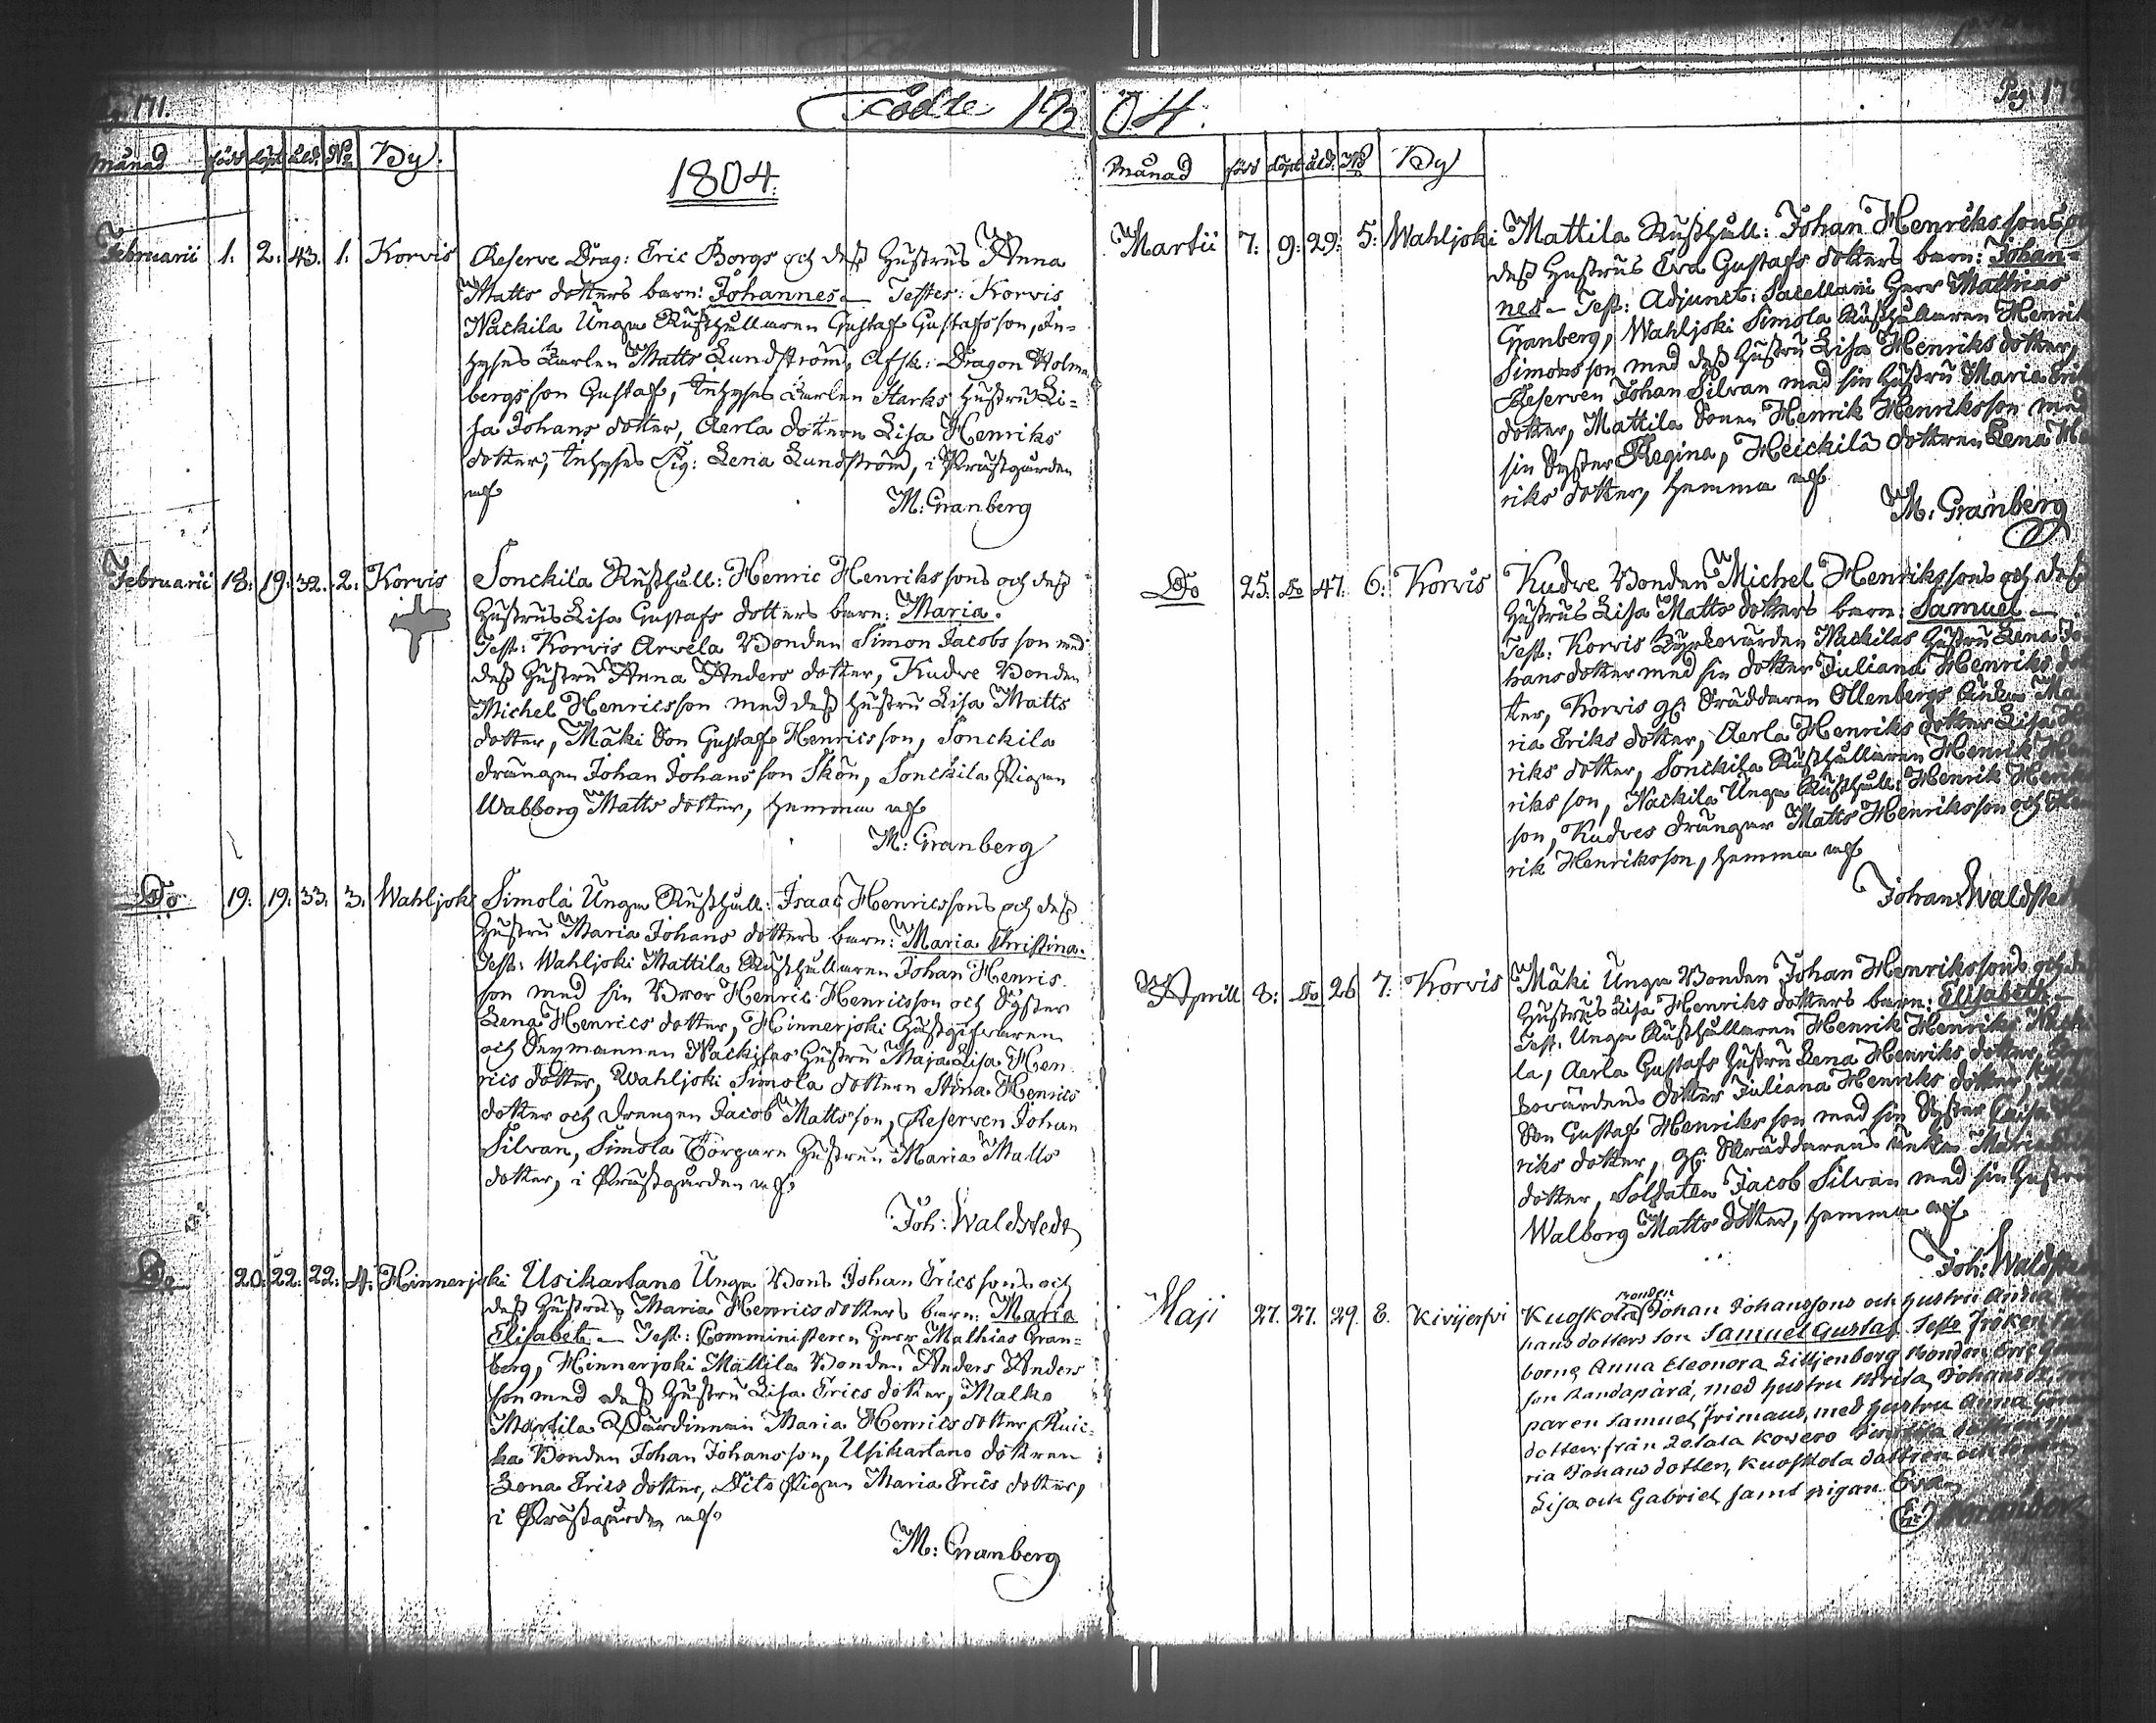 Pag. 171.
Födde 18
Månad född döpt åld. No By.
1804.
Februarii 1. 2. 43. 1. Korvis Reserve Drag: Eric Borgs och deß Hustrus Anna
Matts dotters barn: Johannes — Testes: Korvis
Nackila Unga Rusthållaren Gustaf Gustafsson, In-
hyses Karlen Matts Lundström, Afsk: Dragon Holm
bergs son Gustaf, Inhyses Karlen Starks Hustru Li-
sa Johans dotter, Aerla dottern Lisa Henriks
dotter, Inhyses Pig: Lena Lundström, i Prästgården
M: Granberg
Februarii 18. 19. 32. 2. Korvis Sonckila Rusthåll: Henric Henrikssons och deß
Hustrus Lisa Gustafs dotters barn: Maria.
Test: Korvis Arvela Bonden Simon Jacobs son med
deß Hustru Anna Anders dotter, Kudve Bonden
Michel Henricsson med deß Hustru Lisa Matts
dotter, Mäki Son Gustaf Henricsson, Sonckila
drängen Johan Johansson Skön, Sonckila Pigan
Wabborg Matts dotter, hemma
M: Granberg
Do 19. 19. 33. 3. Wahljoki Simola Unga Rusthåll: Isaac Henricssons och deß
Hustru Maria Johans dotters barn: Maria Christina.
Test: Wahljoki Mattila Rusthållaren Johan Henris
son med sin Bror Henric Henricsson och Syster
Lena Henrics dotter, Hinnerjoki Gästgifvaren
och Nackilas Hustru Maja Lisa Hen
rics dotter, Wahljoki Simola dottern Stina Henrics
dotter och drengen Jacob Mattsson, Reserven Johan
Silvan, Simola Torpare Hustrun Maria Matts
dotter, i Prästgården
Joh: Waldstedt
Do 20. 22. 22. 4. Hinnerjoki Usikartano Unga Bond. Johan Ericssons och
deß Hustrus Maria Henrics dotters barn: Maria
Elisabet. — Test: Comministern Herr Mathias Gran-
berg, Hinnerjoki Mattila Bonden Anders Anders
son med deß Hustru Lisa Erics dotter, Malko
Martila Wärdinnan Maria Henrics dotter,
Bonden Johan Johansson, Usikartano dottren
Lena Erics dotter, Dito Pigan Maria Erics dotter,
i Prästgården
M: Granberg
04.
Pag. 17
Månad född döpt åld. No By
Martii 7. 9. 29. 5. Wahljoki Mattila Rusthåll: Johan Henrikssons
deß Hustrus Eva Gustafs dotters barn: Johan-
nes — Test: Adjunct: Sacellani Herr Mathias
Granberg, Wahljoki Simola Rusthållaren Henrik
Simonsson med deß Hustru Lisa Henriks dotter,
Reserven Johan Silvan med sin Hustru Maria
dotter, Mattila Sonen Henrik Henriksson med
sin Syster Regina, Heickilä dottren Lena
riks dotter, hemma
M: Granberg
Do 25. Do 47. 6. Korvis Kudve Bonden Michel Henrikssons och deß
Hustrus Lisa Matts dotters barn: Samuel —
Test: Korvis Kyrkovärden Nackilas Hustru Lena Jo
hansdotter med sin dotter Juliana Henriks
ter, Korvis Skräddaren Ollenbergs Änka Ma
ria Eriks dotter, Aerla Henriks dotter Lisa
riks dotter, Sonckila Rusthållaren Henrik Hen
riks son, Nackila Unga Rusthåll: Henrik Henrik
son, Kudves drängar Matts Henriksson och Hen
rik Henriksson, hemma
Johan Waldsted
Aprill 8. Do 26 7. Korvis Mäki Unga Bonden Johan Henrikssons och
Hustrus Lisa Henriks dotters barn: Elisabeth —
Test: Unga Rusthållaren Henrik Henriks
la, Aerla Gustafs Hustru Lena Henriks dotter,
kovärdens dotter Juliana Henriks dotter,
Son Gustaf Henriksson med sin Syster
riks dotter, Skräddarens Änka Maria
dotter, Soldaten Jacob Silvan med sin Hustru
Walborg Matts dotter, hemma
Joh: Waldste
Maji 27. 27. 29. 8. Kivijervi Kuoskola bonden Johan Johanssons och hustru Anna
hans dotters Son Samuel Gustaf. Test: fröken
borne Anna Eleonora Lilljenborg Bonden Eric
son Randapärä, med hustru Brita Johans
paren Samuel Friman, med hustru Anna
dotter, från Kovero
ria Johans dotter, Kuoskola dottren och
Lisa och Gabriel samt pigan Eva